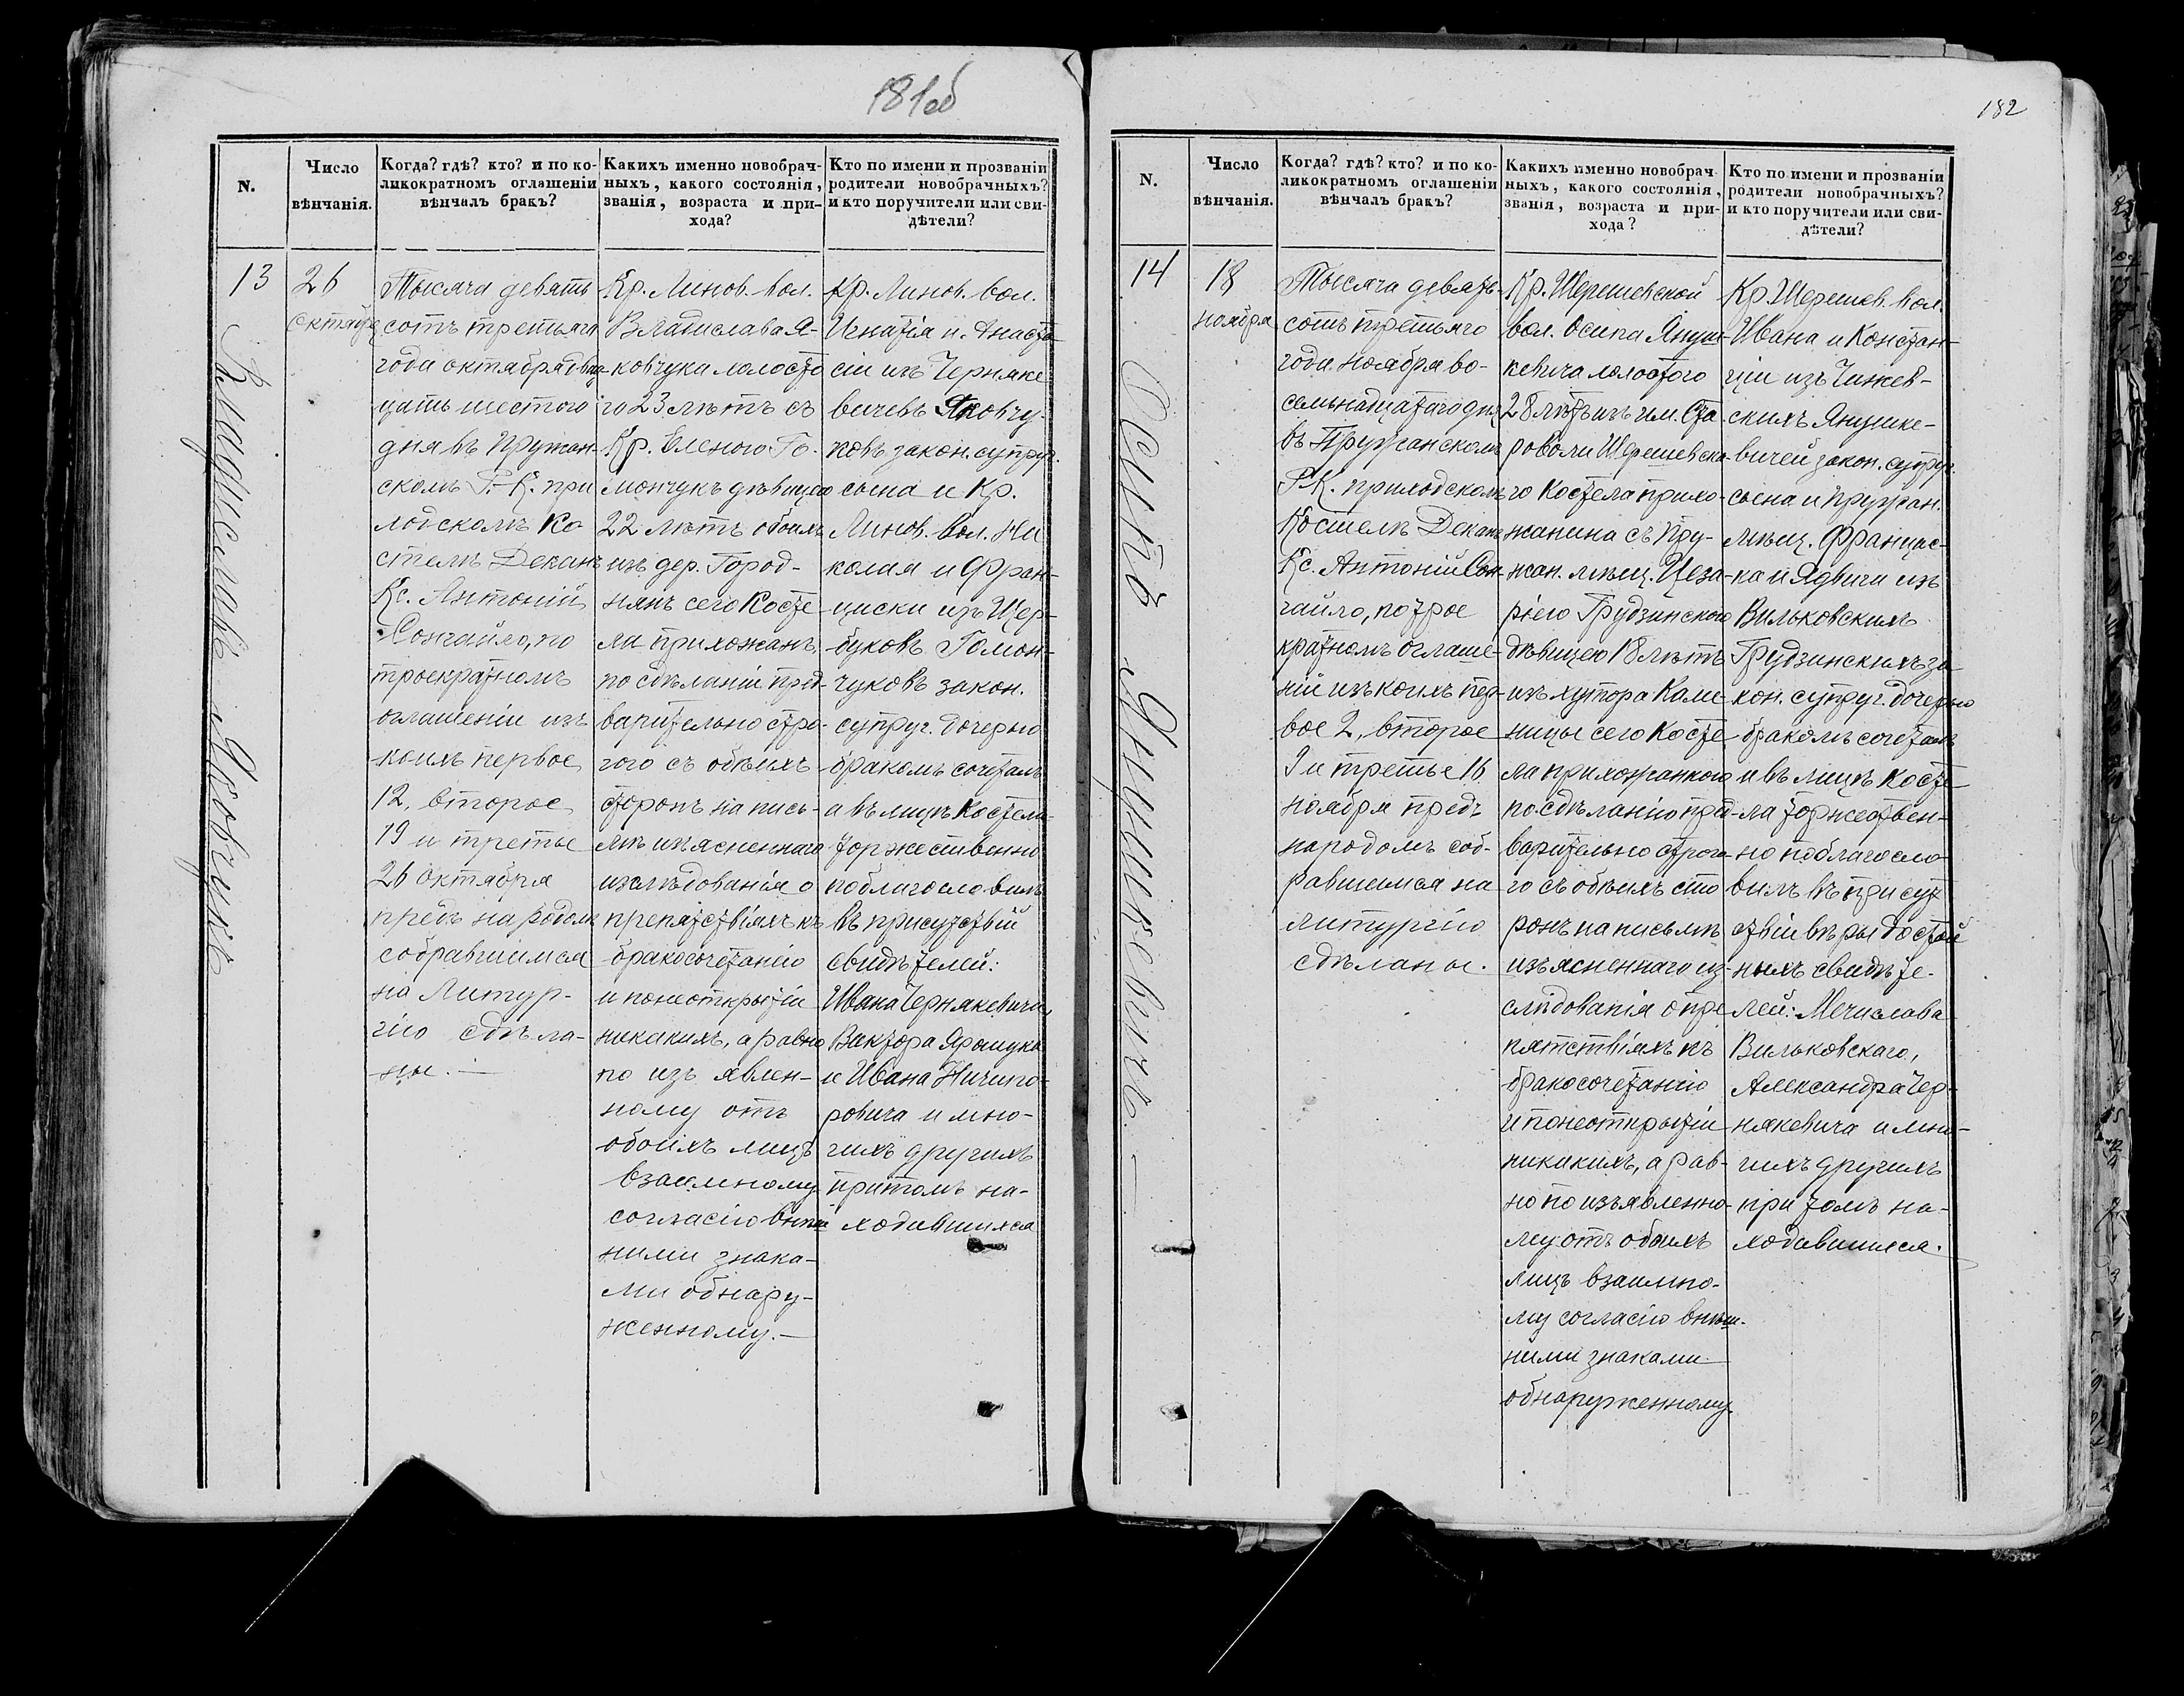 181об
N.
Число
вѣнчанія.
Когда? гдѣ? кто? и по ко-
ликократномъ оглашеніи
вѣнчалъ бракъ?
Какихъ именно новобрач-
ныхъ, какого состоянія,
званія, возраста и при-
хода?
Кто по имени и прозваніи
родители новобрачныхъ?
и кто поручители или сви-
дѣтели?
13
Владиславъ Яковчукъ
26
октября
Тысяча девять
сотъ третьяго
года октября два
цать шестого
дня въ Пружан-
скомъ Р.-К. при
ходскомъ Ко
стелѣ Деканъ
Кс. Антоній
Сончайло, по
троекратномъ
оглашеніи изъ
коихъ первое
12, второе
19 и третье
26 октября
предъ народомъ
собравшимся
на Литур-
гію сдѣла-
ны.—
Кр. Линов. вол.
Владислава Я-
ковчука холосто
го 23 лѣтъ съ
Кр. Еленою Го-
мончукъ дѣвицею
22 лѣтъ обоихъ
изъ дер. Город-
нянъ сего Косте-
ла прихожанъ
по сдѣланіи пред-
варительно стро-
гого съ обѣихъ
сторонъ на пись-
мѣ изъясненнаго
изслѣдованія о
препятствіяхъ къ
бракосочетанію
и понеоткрытіи
никакихъ, а равно
по изъ явлен-
ному отъ
обоихъ лицъ
взаимному
согласію внѣш
ними знака-
ми обнару-
женному.—
Кр. Линов. вол.
Игнатія и Анаста-
сіи изъ Черняке
вичевъ Яковчу-
ковъ закон. супруг.
сына и Кр.
Линов. вол. Ни
колая и Фран-
циски изъ Щер-
буковъ Гомон-
чуковъ закон.
супруг. дочерью
бракомъ сочеталъ
а въ лицѣ Костела
торжественно
поблагословилъ
въ присутствіи
свидѣтелей:
Ивана Чернякевича,
Виктора Ярошука
и Ивана Ничипо-
ровича и мно-
гихъ другихъ
притомъ на-
ходившихся
182
N.
Число
вѣнчанія.
Когда? гдѣ? кто? и по ко-
ликократномъ оглашеніи
вѣнчалъ бракъ?
Какихъ именно новобрач
ныхъ, какого состоянія,
званія, возраста и при-
хода?
Кто по имени и прозваніи
родители новобрачныхъ?
и кто поручители или сви-
дѣтели?
14
Осипъ Янушкевичъ.
18
ноября
Тысяча девять-
сотъ третьяго
года ноября во-
семьнадцатаго дня
въ Пружанскомъ
Р.К. приходскомъ
Костелѣ Деканъ
Кс. Антоній Сон-
чайло, по трое
кратномъ оглаше-
ніи изъ коихъ пер-
вое 2, второе
9 и третье 16
ноября предъ
народомъ соб-
равшимся на
литургію
сдѣланы.
Кр. Шерешевской
вол. Осипа Януш-
кевича холостого
28 лѣтъ изъ им. Ста-
роволи Шерешевска-
го Костела прихо-
жанина съ Пру-
жан. мѣщ. Цеза-
ріею Грудзинскою
дѣвицею 18 лѣтъ
изъ хутора Каме
ницы сего Косте-
ла прихожанкою
по сдѣланію пред-
варительно строга-
го съ обѣихъ сто
ронъ на письмѣ
изъясненнаго из-
слѣдованія о пре
пятствіяхъ къ
бракосочетанію
и понеоткрытіи
никакихъ, а рав-
но по изъявленно-
му отъ обоихъ
лицъ взаимно-
му согласію внѣш-
ними знаками
обнаруженному.
Кр. Шерешев. вол.
Ивана и Констан-
ціи изъ Чижев-
скихъ Янушке-
вичей закон. супруг.
сына и Пружан.
мѣщ. Францис-
ка и Ядвиги изъ
Вильковскихъ
Грудзинскихъ за
кон. супруг. дочерью
бракомъ сочеталъ
и въ лицѣ Косте-
ла торжествен-
но поблагосло
вилъ въ присут
ствіи вѣры достой
ныхъ свидѣте-
лей: Мечислава
Вильковскаго,
Александра Чер-
някевича и мно-
гихъ другихъ
при томъ на-
ходившихся.